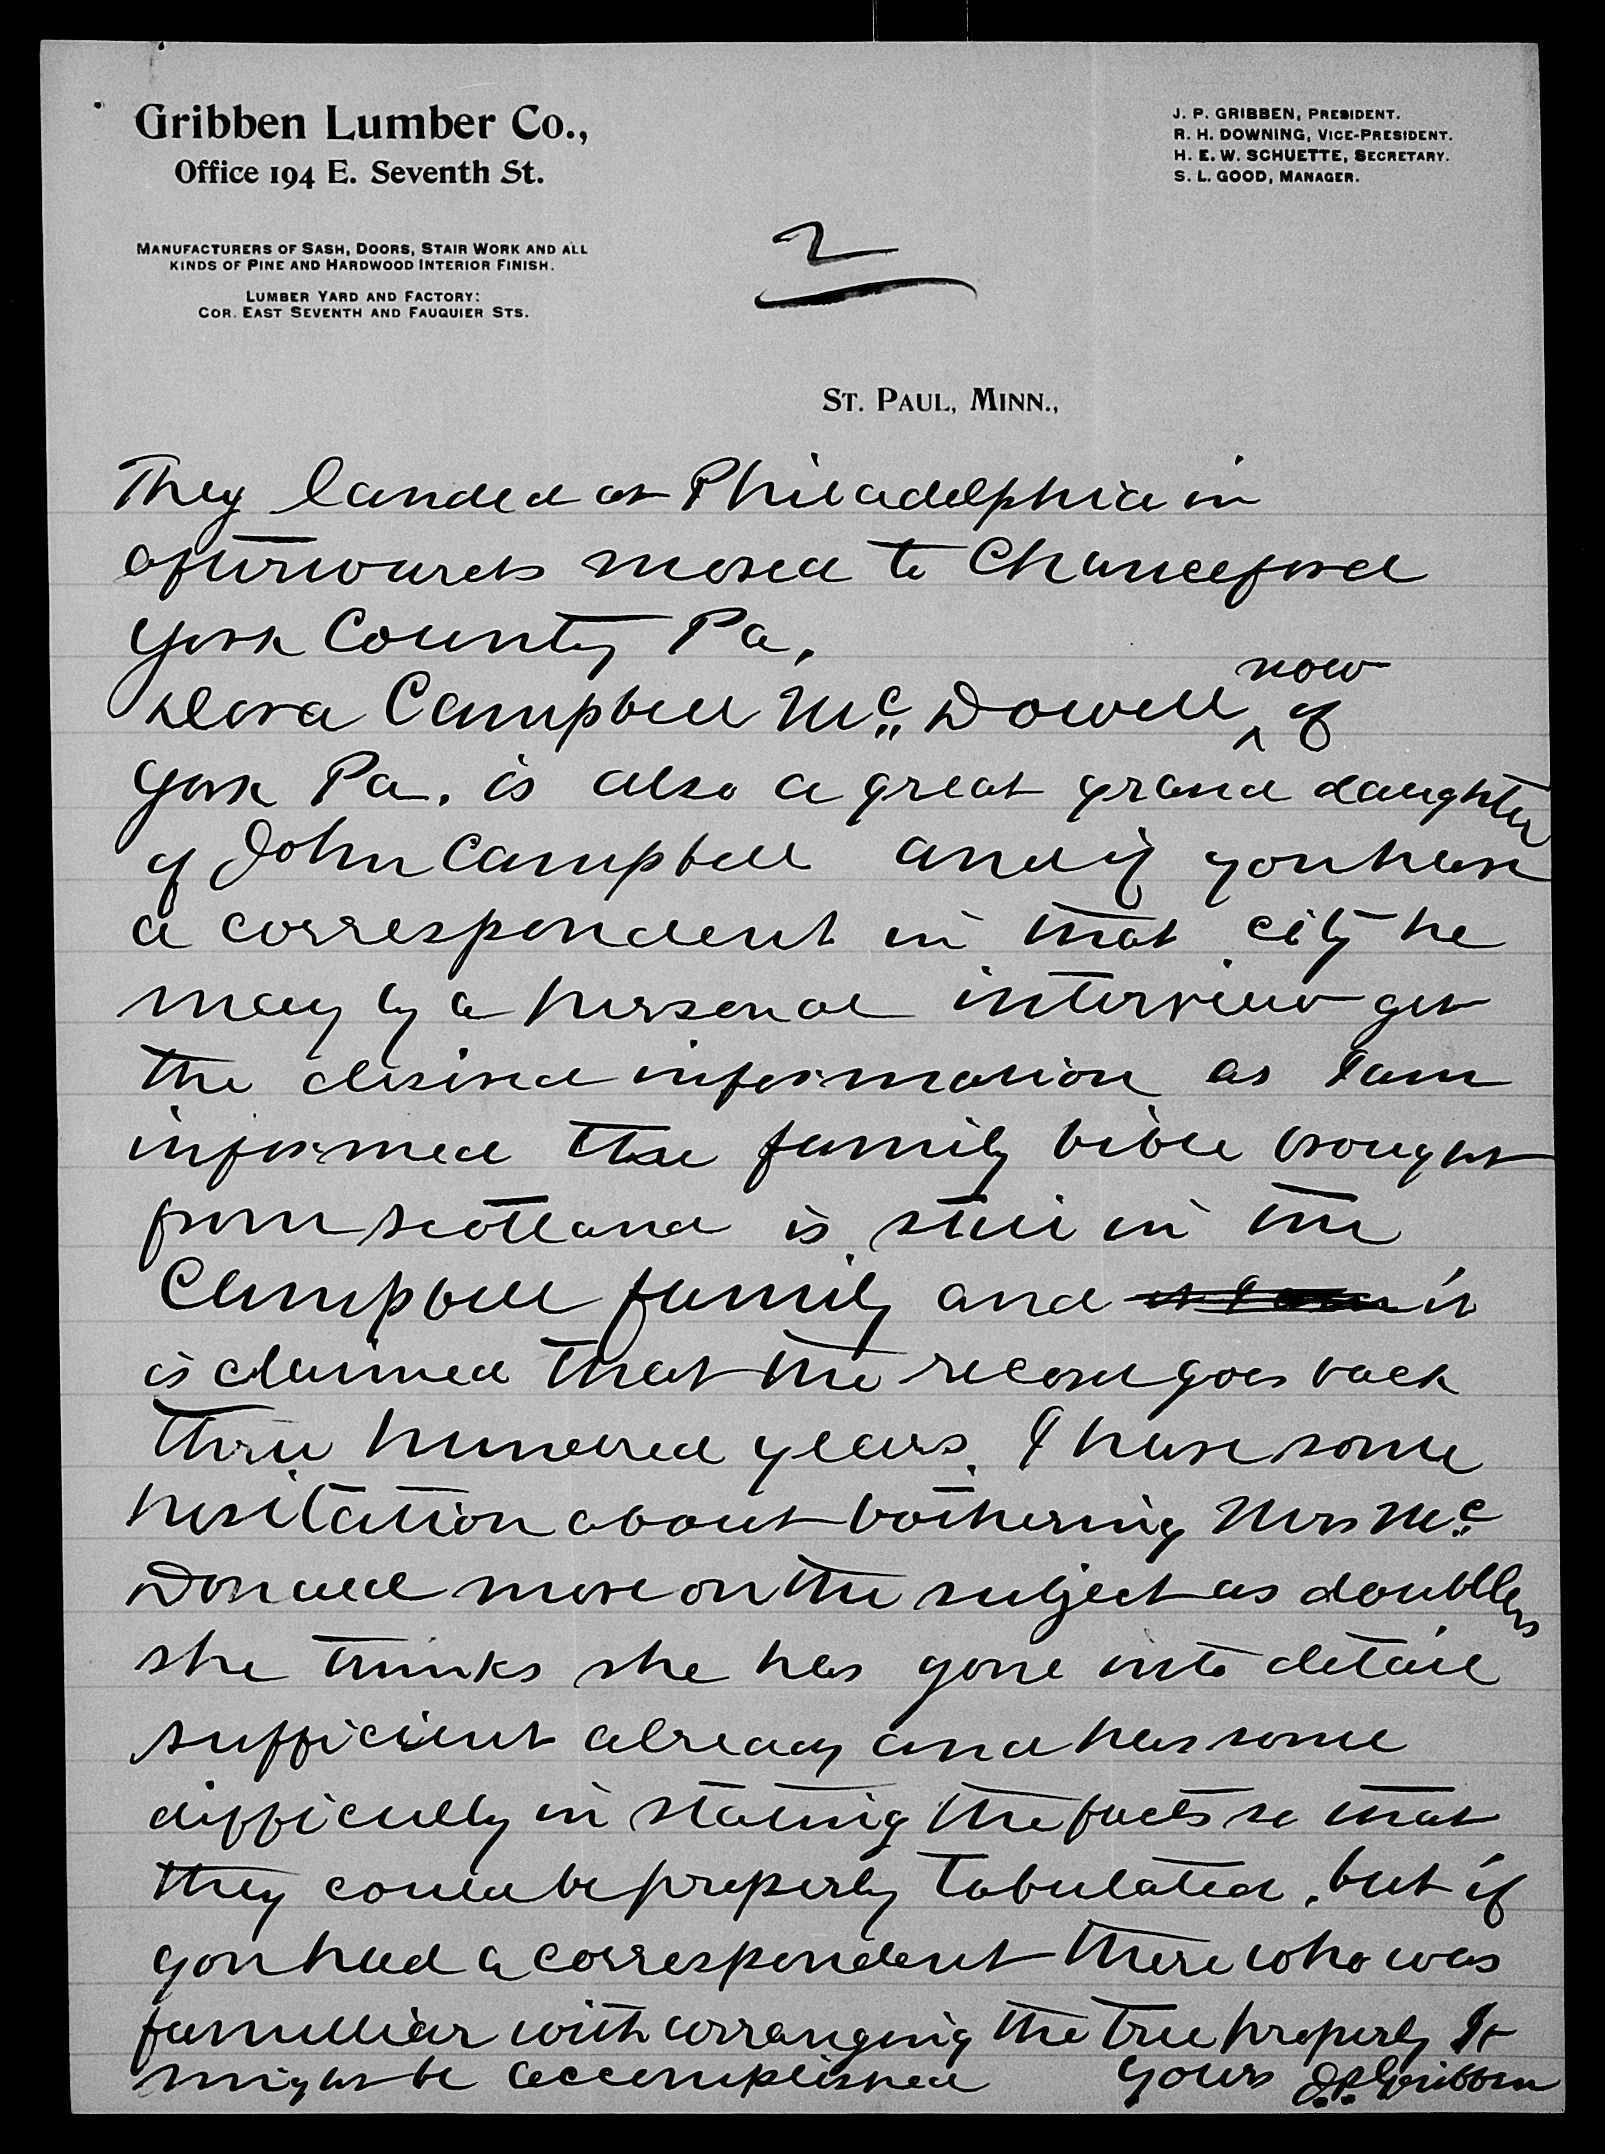 Gribben Lumber Co.,
Office 194 E. Seventh St.
MANUFACTURERS OF SASH, DOORS, STAIR WORK AND ALL
KINDS OF PINE AND HARDWOOD INTERIOR FINISH.
LUMBER YARD AND FACTORY:
COR. EAST SEVENTH AND FAUQUIER STS.
J. P. GRIBBEN, PRESIDENT.
R. H. DOWNING, VICE-PRESIDENT.
H. E. W. SCHUETTE, SECRETARY.
S. L. GOOD, MANAGER.
2
ST. PAUL, MINN.,
They landed at Philadelphia in
afterwards moved to Chanceford
York County Pa.
Dora Campbell Mc Dowell now of
York Pa. is also a great grand daughter
of John Campbell and if you have
a correspondent in that city he
may by a personal interview get
the desired information as I am
informed the family bible brought
from Scotland is still in the
Campbell family and it
is claimed that the record goes back
three hundred years. I have some
hesitation about bothering Mrs Mc
Donald more on the subject as doubtless
she thinks she has gone into detail
sufficient already and has some
difficulty in stating the facts so that
they could be properly tabulated, but if
you had a correspondent there who was
familliar with arranging the tree properly It
might be accomplished Yours J.P. Gribben